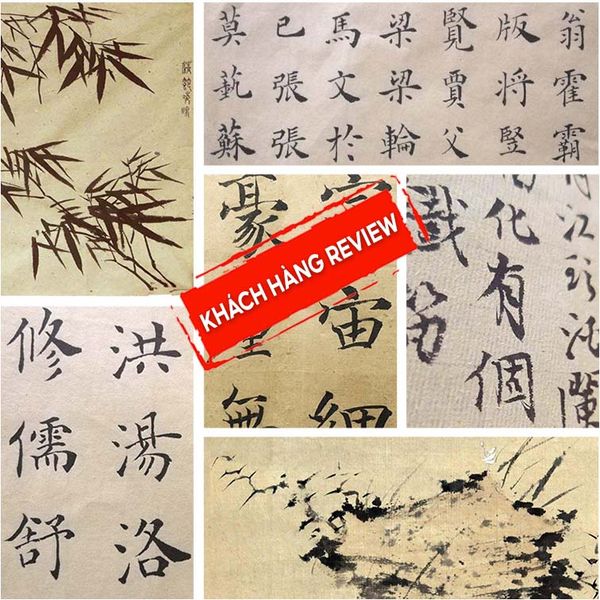 翁霍霸
版将竪
賢賈父
梁梁輪
馬文於
已張張
莫蓺蘇
KHÁCH HÀNG REVIEW
宙細
豪無
江
化有個
笛
洪湯洛
修儒舒